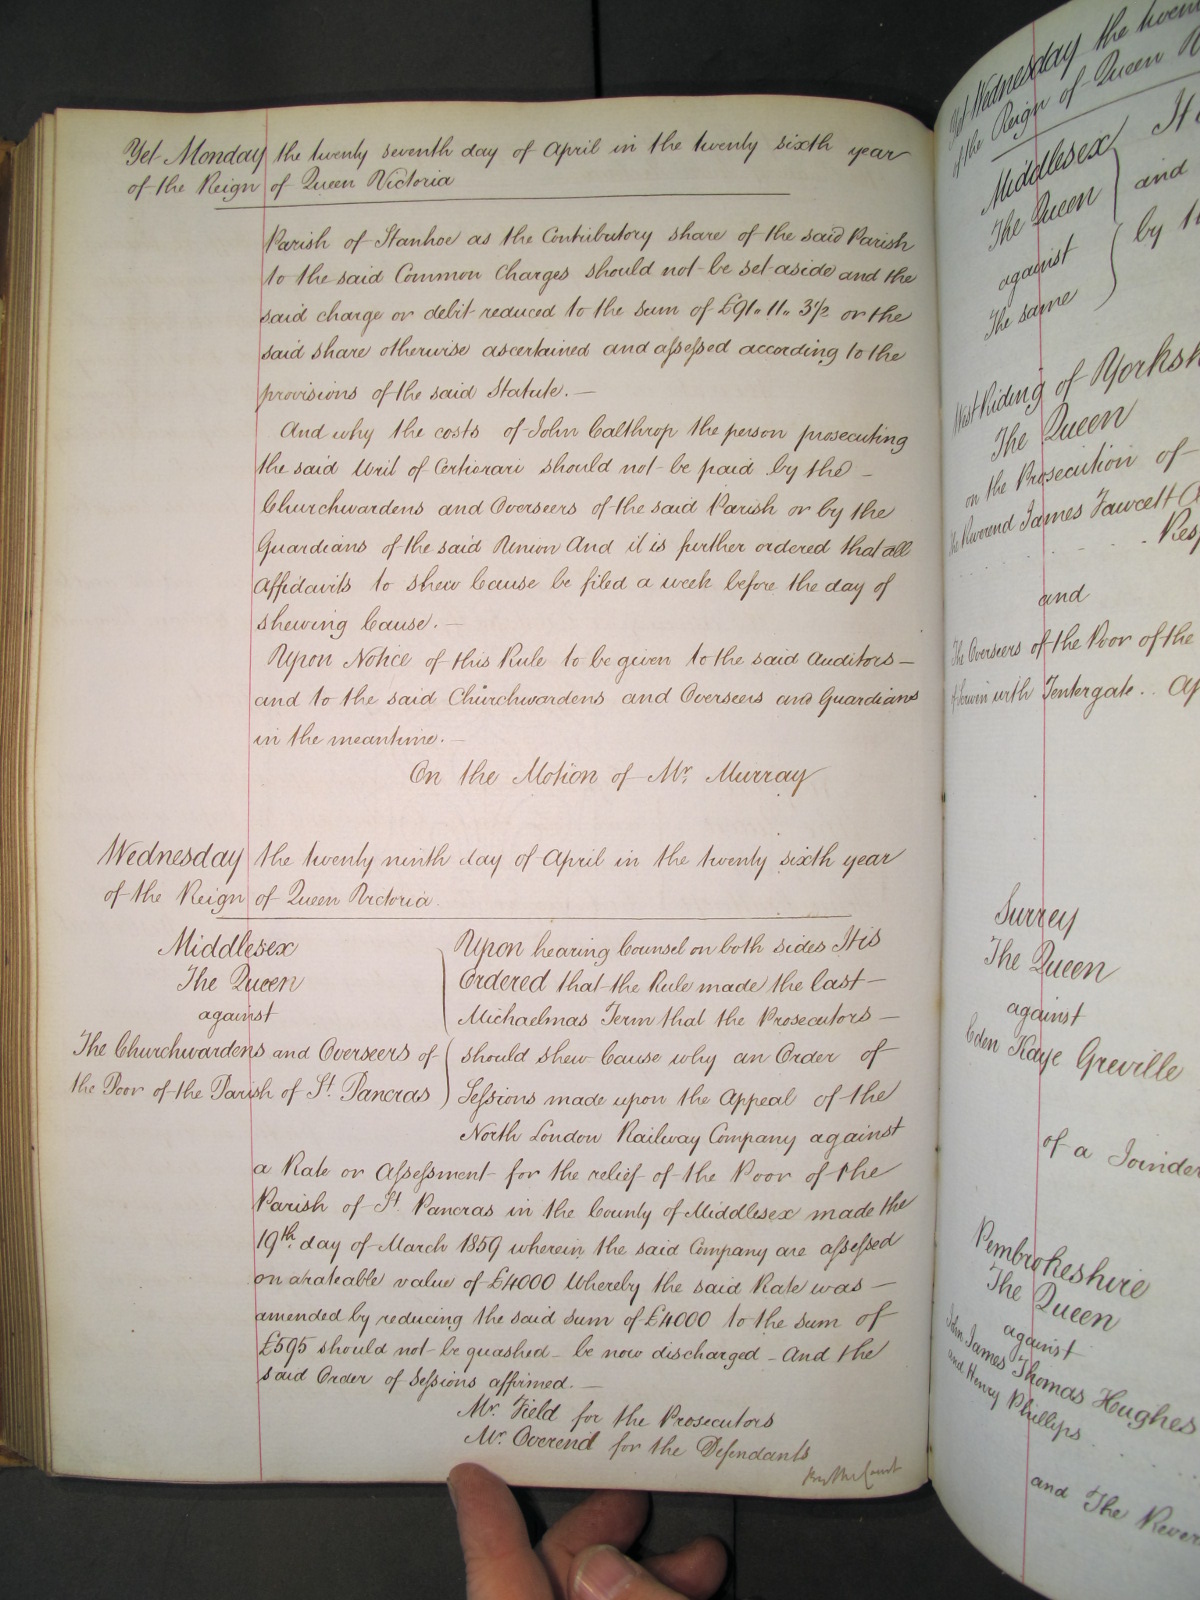 Yet Monday the twenty seventh day of April in the twenty sixth year
of the Reign of Queen Victoria
Parish of Stanhoe as the Contributory share of the said Parish
to the said Common Charges should not be set aside and the
said charge or debit reduced to the sum of £91. 11. 3½ or the
said share otherwise ascertained and assessed according to the
provisions of the said Statute. —
And why the costs of John Calthrop the person prosecuting
the said Writ of Certiorari should not be paid by the —
Churchwardens and Overseers of the said Parish or by the
Guardians of the said Union And it is further ordered that all
Affidavits to shew Cause be filed a week before the day of
shewing Cause. —
Upon Notice of this Rule to be given to the said Auditors —
and to the said Churchwardens and Overseers and Guardians
in the meantime. —
On the Motion of Mr. Murray
Wednesday the twenty ninth day of April in the twenty sixth year
of the Reign of Queen Victoria.
Middlesex
The Queen
against
The Churchwardens and Overseers of
the Poor of the Parish of St. Pancras
Upon hearing Counsel on both sides It is
Ordered that the Rule made the last —
Michaelmas Term that the Prosecutors —
should shew Cause why an Order of
Sessions made upon the Appeal of the
North London Railway Company against
a Rate or Assessment for the relief of the Poor of the
Parish of St. Pancras in the County of Middlesex made the
19th. day of March 1859 wherein the said Company are assessed
on a rateable value of £4000 Whereby the said Rate was —
amended by reducing the said sum of £4000 to the sum of
£595 should not be quashed — be now discharged — And the
said Order of Sessions affirmed. —
Mr. Field for the Prosecutors
Mr. Overend for the Defendants
By the Court
Yet Wednesday the twen
of the Reign of Queen
Middlesex
The Queen
against
The same
It
and
by th
West Riding of Yorksh
The Queen
on the Prosecution of
The Reverend James Fawcett
Resp
and
The Overseers of the Poor of the
with Tentergate .. Ap
Surrey
The Queen
against
Eden Kaye Greville
of a Joinder
Pembrokeshire
The Queen
against
John James Thomas Hughes
and Henry Phillips
and The Rever